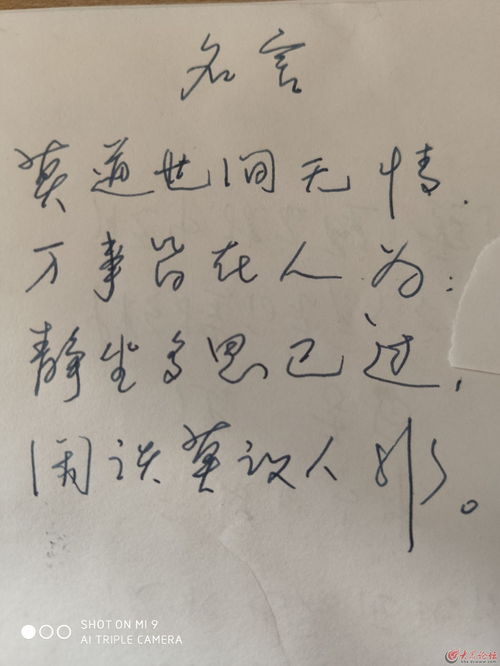 名言
莫道世间无情.
万事皆在人为:
静坐多思己过,
闲谈莫议人非。
SHOT ON MI 9
AI TRIPLE CAMERA
大众论坛